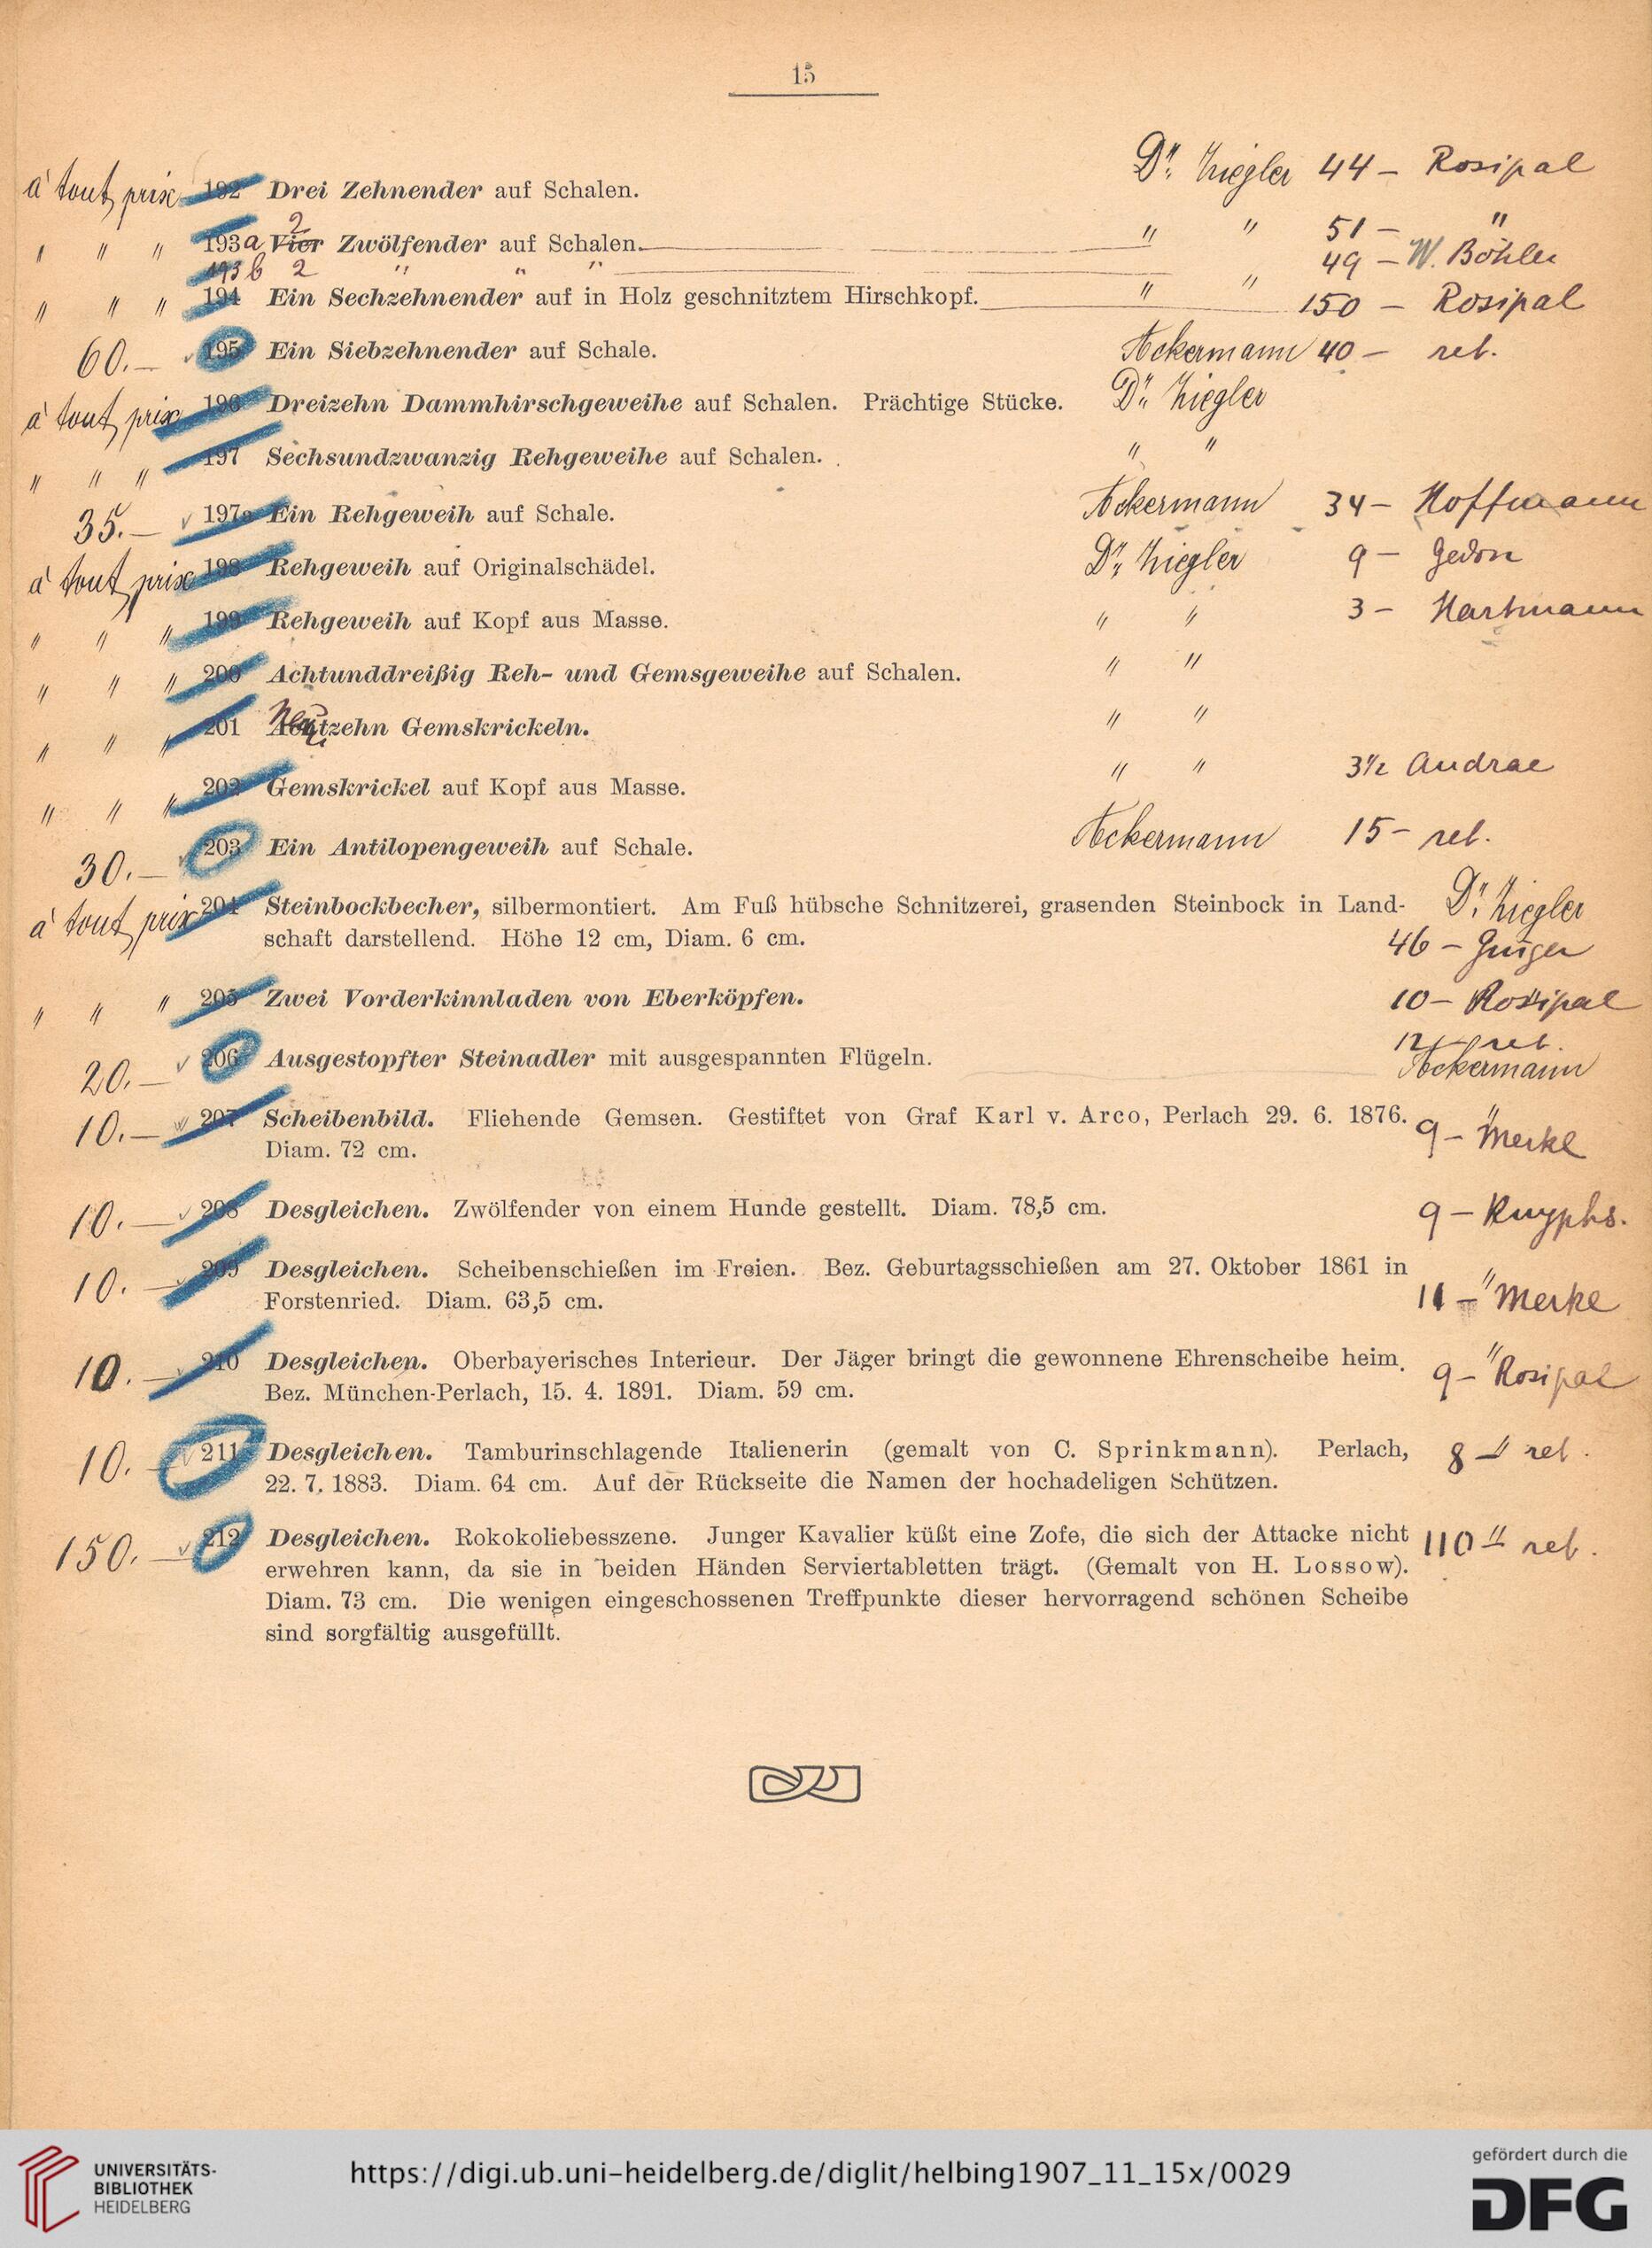 15
à tout prix 192 Drei Zehnender auf Schalen. Dr. Ziegler 44 – Rosipal
" " " 193a Vier 2 Zwölfender auf Schalen. " " 51 – "
193b 2 " " " " 49 – W. Böhler
" " " 194 Ein Sechzehnender auf in Holz geschnitztem Hirschkopf. " 150 – Rosipal
60.— 195 Ein Siebzehnender auf Schale. Ackermann 40 – ret.
à tout prix 196 Dreizehn Dammhirschgeweihe auf Schalen. Prächtige Stücke. Dr. Ziegler
" " " 197 Sechsundzwanzig Rehgeweihe auf Schalen. " "
35.— 197a Ein Rehgeweih auf Schale. Ackermann 34 – Hoffmann
à tout prix 198 Rehgeweih auf Originalschädel. Dr. Ziegler 9 – Gedon
" " " 199 Rehgeweih auf Kopf aus Masse. " " 3 – Hartmann
" " " 200 Achtunddreißig Reh- und Gemsgeweihe auf Schalen. " "
" " " 201 Neunzehn Gemskrickeln. " "
" " " 202 Gemskrickel auf Kopf aus Masse. " " 3 1/2 Andrae
30.— 203 Ein Antilopengeweih auf Schale. Ackermann 15 – ret.
à tout prix 204 Steinbockbecher, silbermontiert. Am Fuß hübsche Schnitzerei, grasenden Steinbock in Land- Dr. Ziegler
schaft darstellend. Höhe 12 cm, Diam. 6 cm. 46 –
" " " 205 Zwei Vorderkinnladen von Eberköpfen. 10 – Rosipal
20.— 206 Ausgestopfter Steinadler mit ausgespannten Flügeln. 12 – ret.
Ackermann
10.— 207 Scheibenbild. Fliehende Gemsen. Gestiftet von Graf Karl v. Arco, Perlach 29. 6. 1876. "
Diam. 72 cm. 9 – Merkl
10.— 208 Desgleichen. Zwölfender von einem Hunde gestellt. Diam. 78,5 cm. 9 –
10.— 209 Desgleichen. Scheibenschießen im Freien. Bez. Geburtagsschießen am 27. Oktober 1861 in "
Forstenried. Diam. 63,5 cm. 11 – Merkl
10.— 210 Desgleichen. Oberbayerisches Interieur. Der Jäger bringt die gewonnene Ehrenscheibe heim. "
Bez. München-Perlach, 15. 4. 1891. Diam. 59 cm. 9 – Rosipal
10.— 211 Desgleichen. Tamburinschlagende Italienerin (gemalt von C. Sprinkmann). Perlach, 8 – " ret.
22. 7. 1883. Diam. 64 cm. Auf der Rückseite die Namen der hochadeligen Schützen.
150.— 212 Desgleichen. Rokokoliebesszene. Junger Kavalier küßt eine Zofe, die sich der Attacke nicht 110 – " ret.
erwehren kann, da sie in beiden Händen Serviertabletten trägt. (Gemalt von H. Lossow).
Diam. 73 cm. Die wenigen eingeschossenen Treffpunkte dieser hervorragend schönen Scheibe
sind sorgfältig ausgefüllt.
UNIVERSITÄTS-
BIBLIOTHEK
HEIDELBERG
https://digi.ub.uni-heidelberg.de/diglit/helbing1907_11_15x/0029
gefördert durch die
DFG